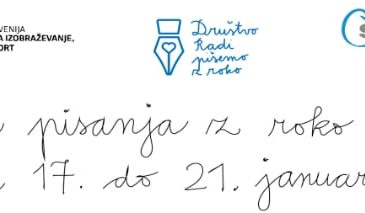 VENIJA
A IZOBRAŽEVANJE,
ORT
Društvo
Radi
pišemo
z roko
pisanja z roko
17. do 21. januar